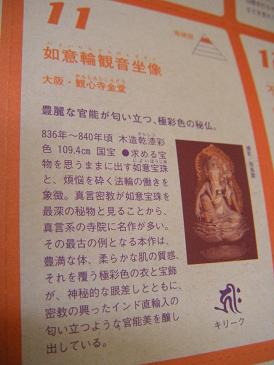 11
如意輪観音坐像
大阪・観心寺金堂
かんしんじこんどう
豊麗な官能が匂い立つ、極彩色の秘仏。
836年～840年頃 木造乾漆彩
色 109.4cm 国宝 ●求める宝
物を思うままに出す如意宝珠
と、煩悩を砕く法輪の働きを
象徴。真言密教が如意宝珠を
最深の秘物と見ることから、
真言系の寺院に名作が多い。
その最古の例となる本作は、
豊満な体、柔らかな肌の質感、
それを覆う極彩色の衣と宝飾
が、神秘的な眼差しとともに、
密教の興ったインド直輸入の
匂い立つような官能美を醸し
出している。
キリーク